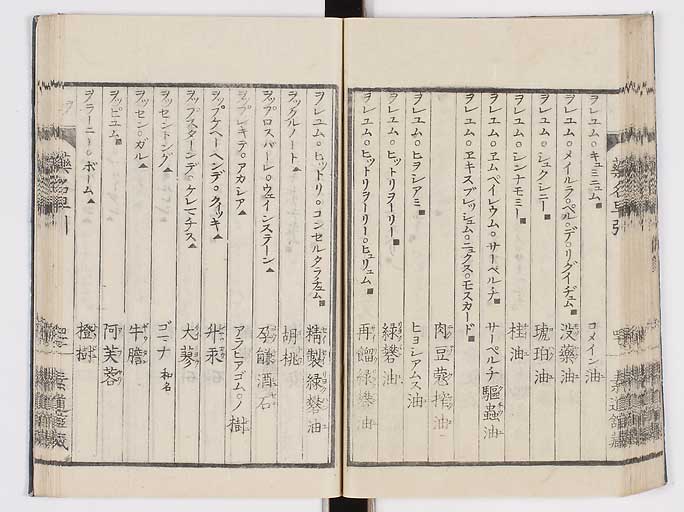 ヲレユム○キュミニュム■ コメイン油
ヲレユム○メイルラ○ペル○デ○リグイヂュム■ 没藥油
ヲレユム○シュクシニー■ 琥珀油
ヲレユム○シンナモミー■ 桂油
ヲレユム○ヱムペイレウム○サーペルチ■ サーペルチ驅蟲油
ヲレユム○ヱキスプレッシュム○ニュクス○モスカード■
肉豆蔲搾油
ヲレユム○ヒヨシアミ■ ヒヨシアムス油
ヲレユム○ヒットリヲーリー■ 緑礬油
ヲレユム○ヒットリヲーリー○ヒリュム■ 再餾緑礬油
ヲレユム○ヒットリ○コンセルタラチュム■ 精製緑礬油
ヲックルノート▲ 胡桃
ヲップロスバーレ○ウェインステーン▲ 孕鹼酒石
ヲップレキテ○アカシア▲ アラヒアゴム○ノ樹
ヲップケヘーヘンデ○クイッキ▲ 升汞
ヲップスターンデ○ケレーチス▲ 大蓼
ヲッセントング▲ ゴニナ 和名
ヲッセン○ガル▲ 牛膽
ヲッピユム■ 阿芙蓉
ヲラーニー○ボーム▲ 橙樹